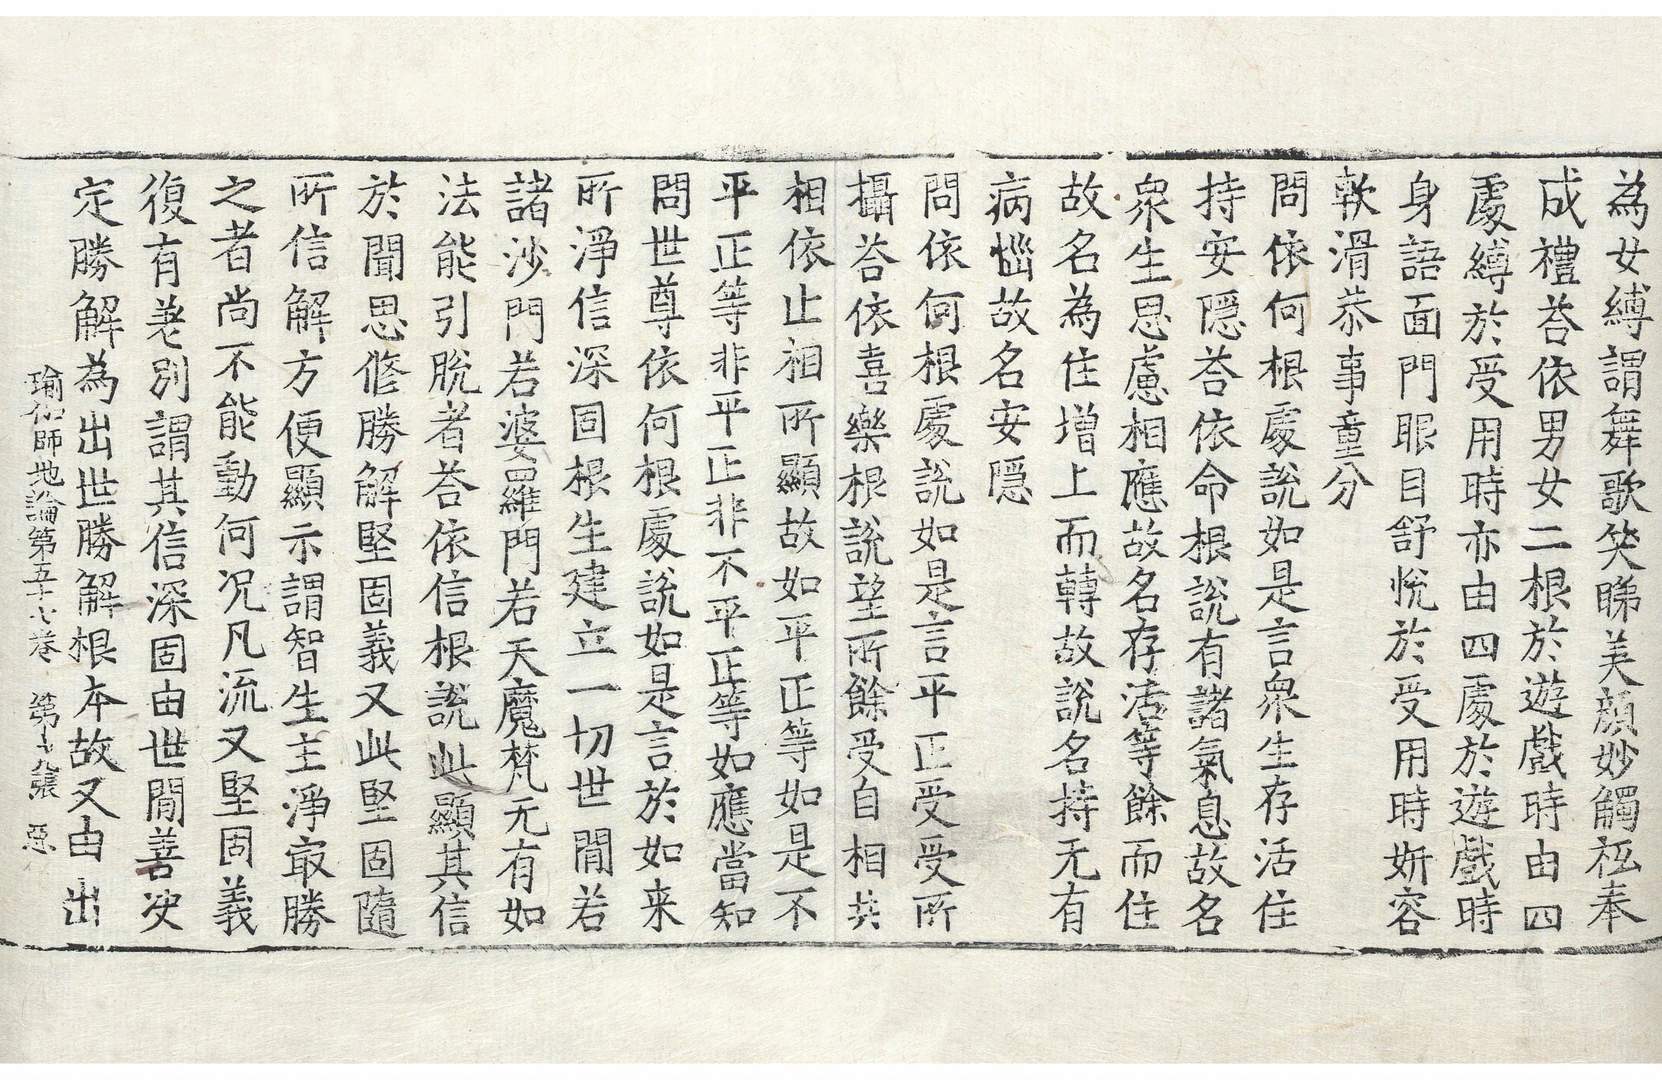 為女縛謂舞歌笑睇美顏妙觸祇奉
成禮荅依男女二根於遊戲時由四
處縛於受用時亦由四處於遊戲時
身語面門眼目舒悅於受用時妍容
軟滑恭事童分
問依何根處說如是言眾生存活住
持安隱荅依命根說有諸氣息故名
眾生思慮相應故名存活等餘而住
故名為住增上而轉故說名持无有
病惱故名安隱
問依何根處說如是言平正受受所
攝荅依喜樂根說望所餘受自相共
相依止相所顯故如平正等如是不
平正等非平正非不平正等如應當知
問世尊依何根處說如是言於如来
所淨信深固根生建立一切世閒若
諸沙門若婆羅門若天魔梵无有如
法能引脫者荅依信根說此顯其信
於聞思修勝解堅固義又此堅固隨
所信解方便顯示謂智生主淨㝡勝
之者尚不能動何況凡流又堅固義
復有差別謂其信深固由世閒善決
定勝解為出世勝解根本故又由出
瑜伽師地論第五十七卷 第十九張 惡